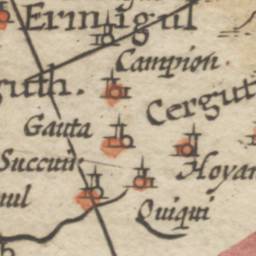 Ermigul
Campion.
guth.
Cergut
Gauta
Succuir
Hoyar
nul
Quiqui